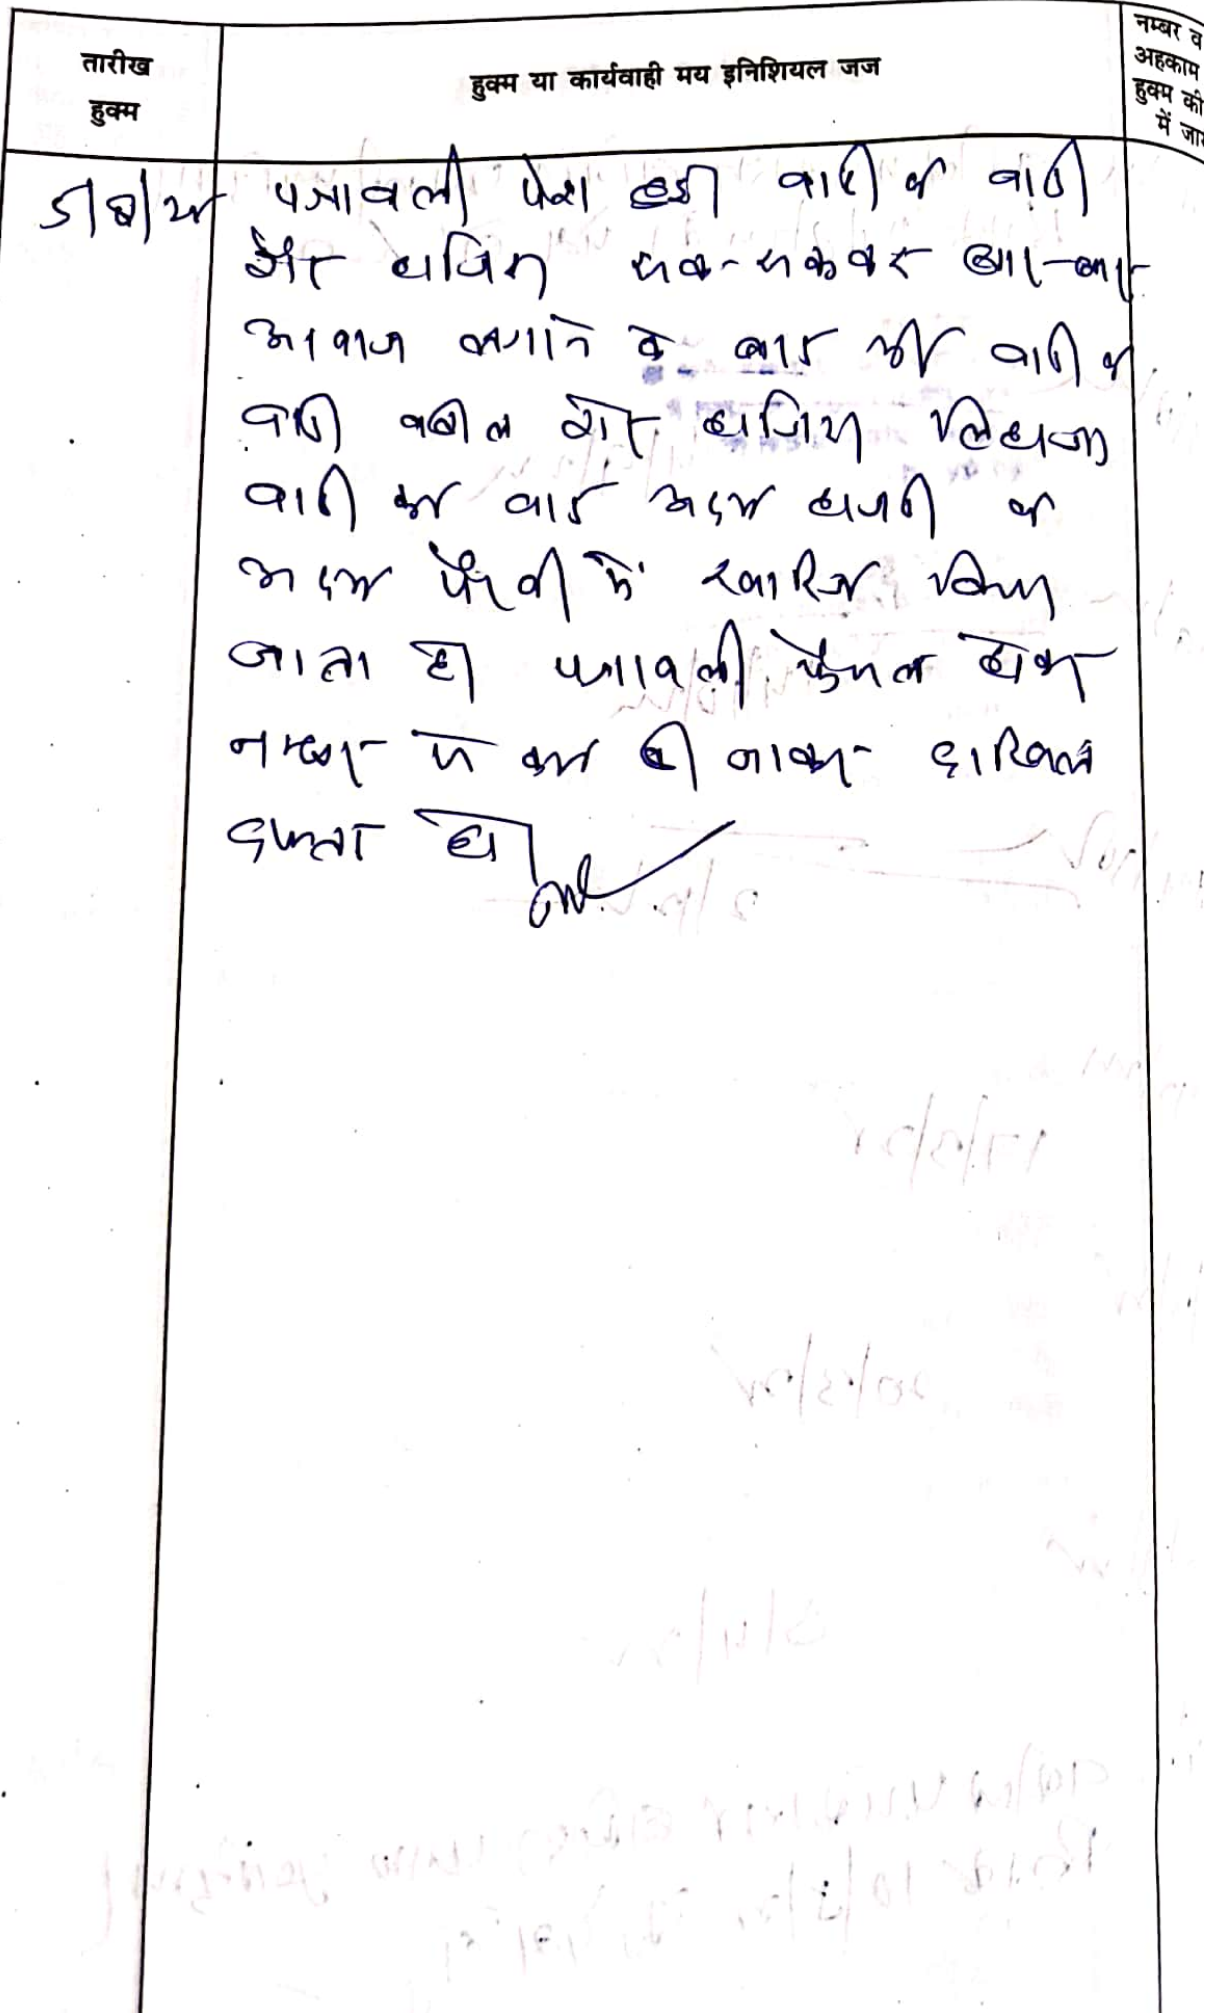 तारीख
हुक्म
हुक्म या कार्यवाही मय इनिशियल जज
नम्बर व
अहकाम
हुक्म की
में जा
पत्रावली पेश हुई वादी व वादी
गैर हाजिर
आवाज लगाने के बाद भी वादी व
वादी वकील गैर हाजिर लिहाजा
वादी का वाद अदम हाजरी व
अदम पैरवी में खारिज किया
जाता है। पत्रावली फैसल होकर
नम्बर से कम की जाकर दाखिल
दफ्तर हो।